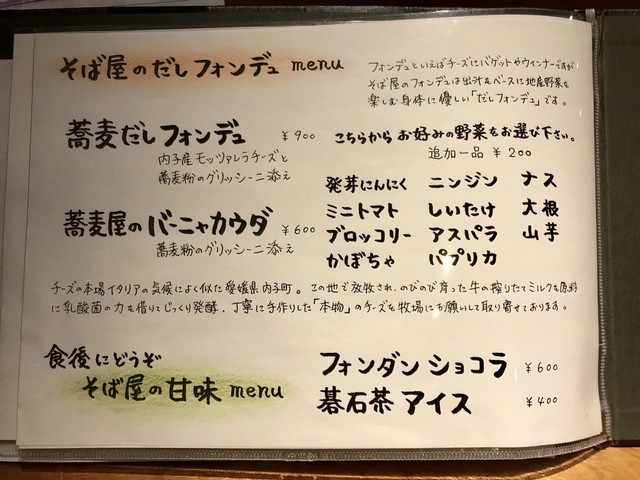 そば屋のだしフォンデュ menu
フォンデュといえばチーズにバゲットやウインナーですが
そば屋のフォンデュは出汁をベースに地産野菜を
楽しむ身体に優しい「だしフォンデュ」です。
蕎麦だしフォンデュ ¥900
内子産モッツァレラチーズと
蕎麦粉のグリッシーニ添え
蕎麦屋のバーニャカウダ ¥600
蕎麦粉のグリッシーニ添え
こちらから お好みの野菜をお選び下さい。
追加一品 ¥200
発芽にんにく ニンジン ナス
ミニトマト しいたけ 大根
ブロッコリー アスパラ 山芋
かぼちゃ パプリカ
チーズの本場イタリアの気候によく似た愛媛県内子町。この地で放牧され、のびのび育った牛の搾りたてミルクを原料
に乳酸菌の力を借りてじっくり発酵、丁寧に手作りした「本物」のチーズを牧場にお願いして取り寄せております。
食後にどうぞ
そば屋の甘味 menu
フォンダンショコラ ¥600
碁石茶アイス ¥400